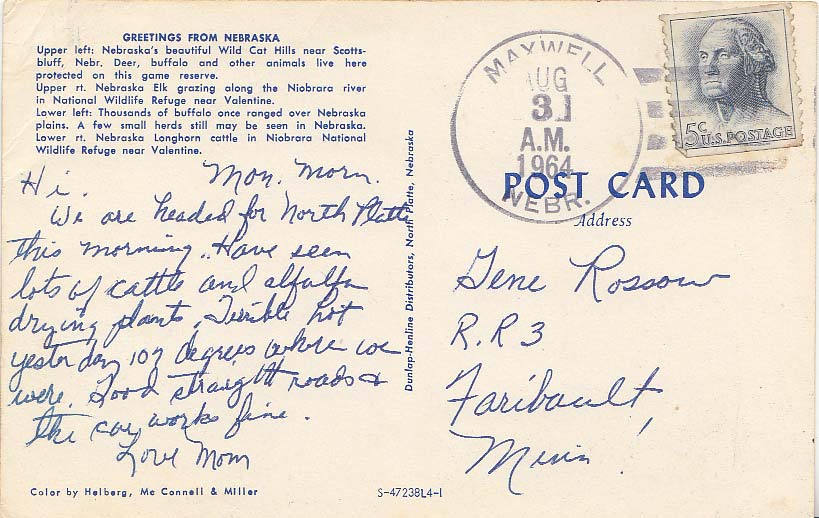 GREETINGS FROM NEBRASKA
Upper left: Nebraska's beautiful Wild Cat Hills near Scotts-
bluff, Nebr. Deer, buffalo and other animals live here
protected on this game reserve.
Upper rt. Nebraska Elk grazing along the Niobrara river
in National Wildlife Refuge near Valentine.
Lower left: Thousands of buffalo once ranged over Nebraska
plains. A few small herds still may be seen in Nebraska.
Lower rt. Nebraska Longhorn cattle in Niobrara National
Wildlife Refuge near Valentine.
Mon. Morn.
Hi.
We are headed for North Platte
this morning. Have seen
lots of cattle and alfalfa
drying plants. Terrible hot
yesterday 107 degrees where we
were. Good straight roads &
the car works fine.
Love Mom
Color by Helberg, Mc Connell & Miller
Dunlap-Henline Distributors, North Platte, Nebraska
S-47238L4-1
MAXWELL
AUG
31
A.M.
1964
NEBR.
5c U.S. POSTAGE
POST CARD
Address
Gene Rossow
R.R 3
Faribault,
Minn!